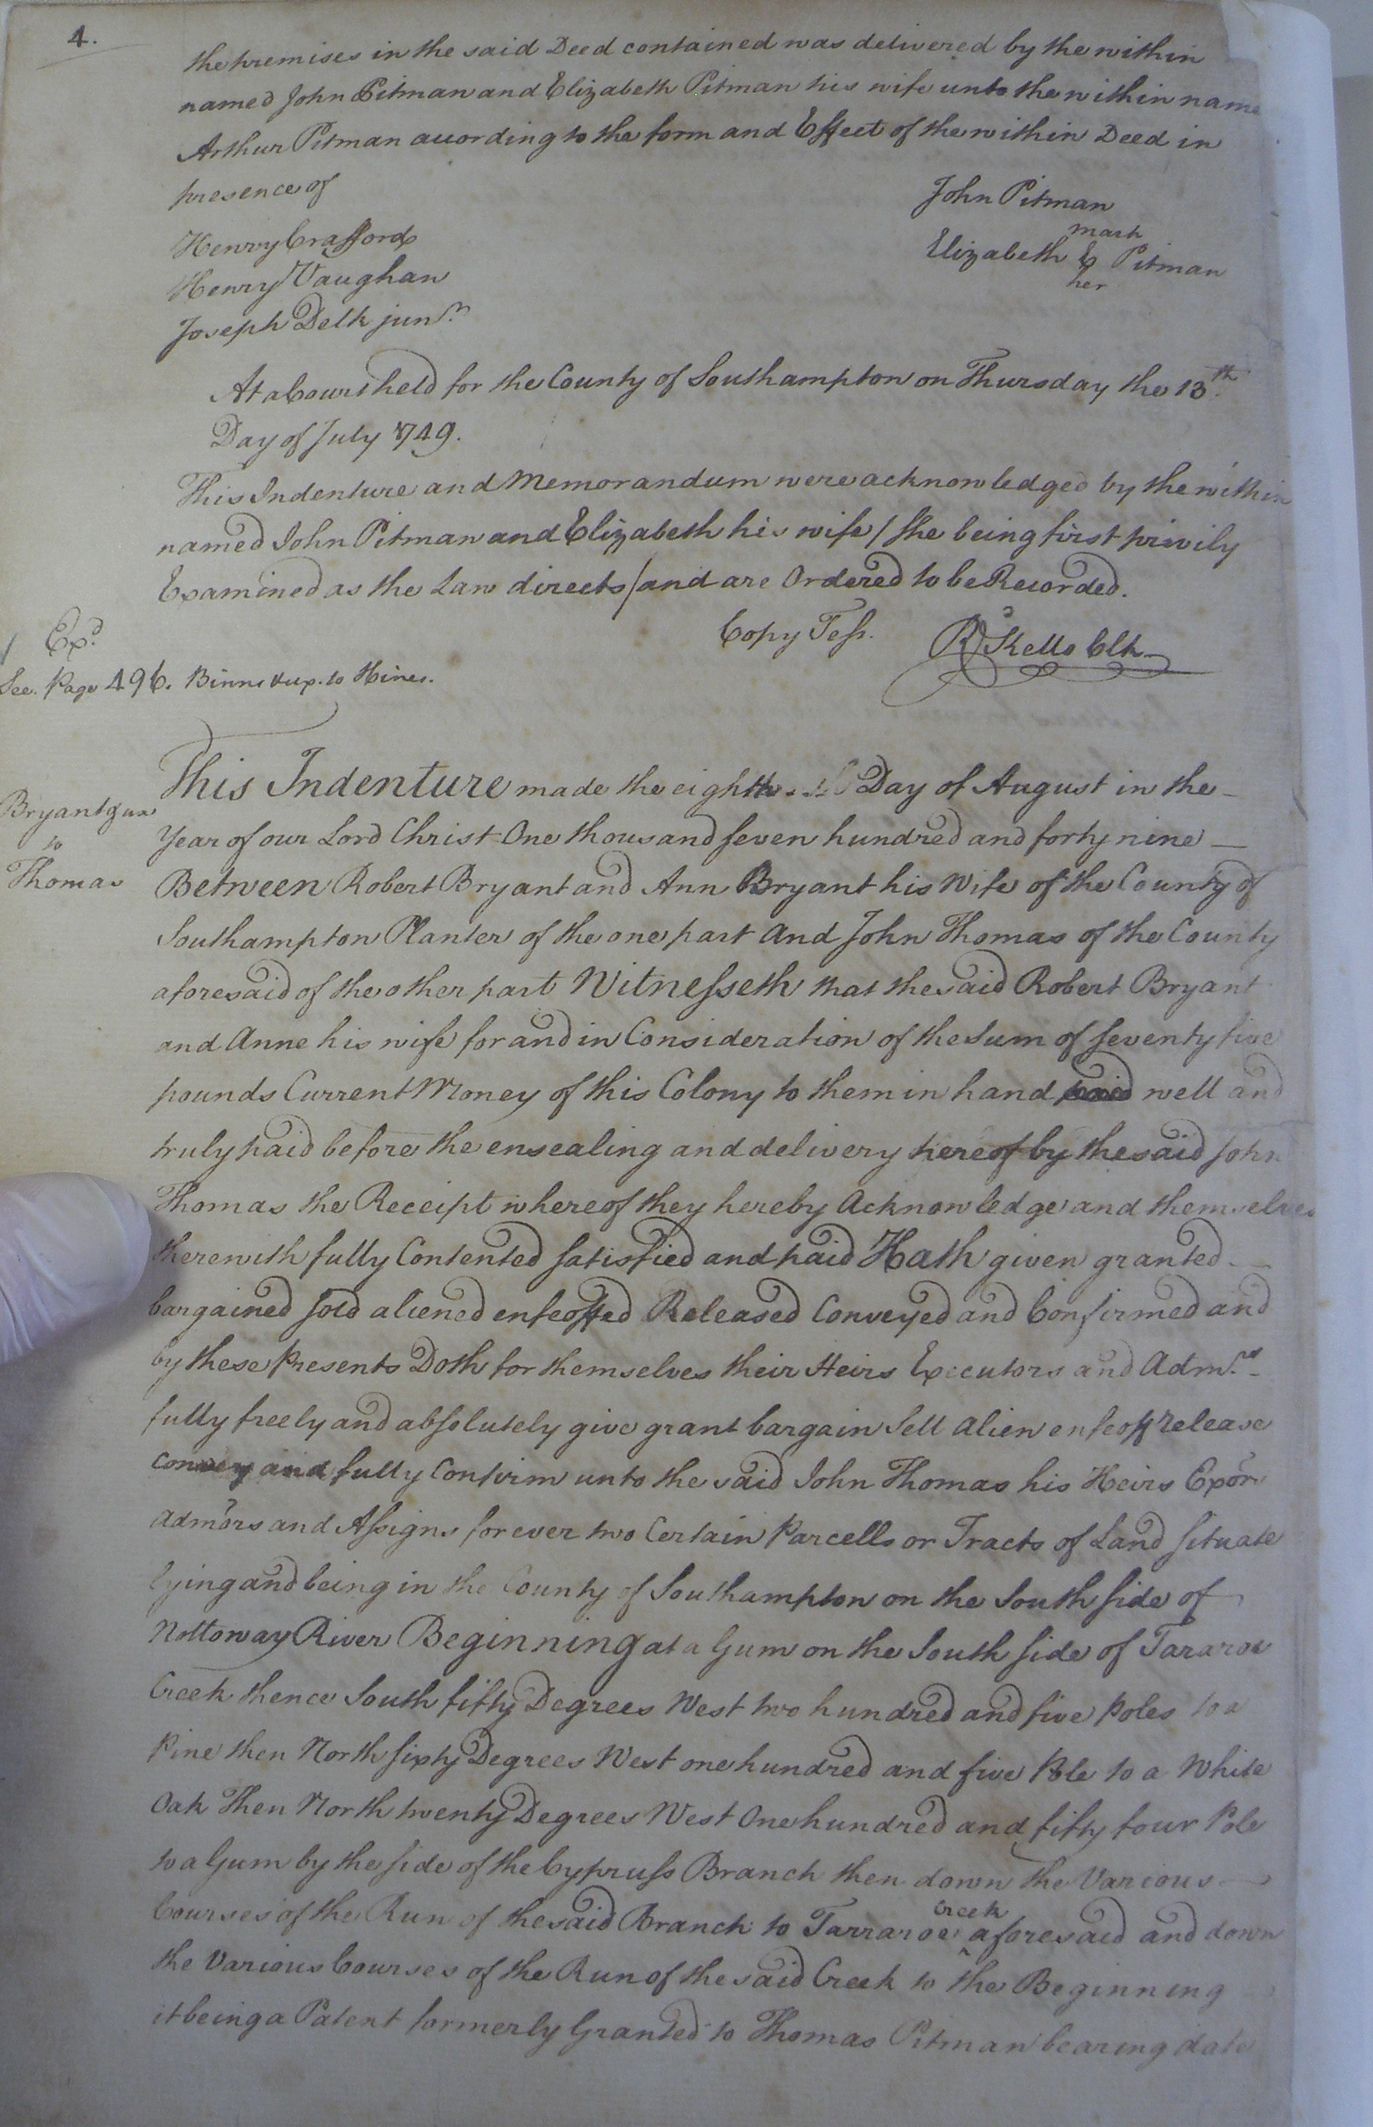 4.
the premises in the said Deed contained was delivered by the within
named John Pitman and Elizabeth Pitman his wife unto the within name
Arthur Pitman according to the form and Effect of the within Deed in
presence of
John Pitman
Henry Crafford
mark
Elizabeth E Pitman
her
Henry Vaughan
Joseph Delk junr.
At a Court held for the County of Southampton on Thursday the 13th.
Day of July 1749.
This Indenture and Memorandum were acknowledged by the within
named John Pitman and Elizabeth his wife / She being first privily
Examined as the Law directs / and are Ordered to be Recorded.
Copy Test.
Rd Kello Clk
Exd.
See. Page 496. Binns &ux. to Hines.
Bryant &ux
to
Thomas
This Indenture made the eighth Day of August in the
Year of our Lord Christ One thousand seven hundred and forty nine
Between Robert Bryant and Ann Bryant his Wife of the County of
Southampton Planter of the one part and John Thomas of the County
aforesaid of the other part Witnesseth that the said Robert Bryant
and Anne his wife for and in Consideration of the Sum of seventy five
pounds Current Money of this Colony to them in hand paid well and
truly paid before the ensealing and delivery hereof by the said John
Thomas the Receipt whereof they hereby Acknowledge and themselves
therewith fully Contented satisfied and paid Hath given granted
bargained sold aliened enfeoffed Released Conveyed and Confirmed and
by these Presents Doth for themselves their Heirs Executors and Admrs.
fully freely and absolutely give grant bargain Sell alien enfeoff release
convey and fully Confirm unto the said John Thomas his Heirs Exors
admors and Assigns for ever two Certain Parcells or Tracts of Land situate
lying and being in the County of Southampton on the South side of
Nottoway River Beginning at a Gum on the South side of Tararoe
Creek thence South fifty Degrees West two hundred and five Poles to a
Pine then North sixty Degrees West one hundred and five Pole to a White
Oak Then North twenty Degrees West One hundred and fifty four Pole
to a Gum by the side of the Cypruss Branch then down the Various
Courses of the Run of the said Branch to Tarraroe Creek aforesaid and down
the Various Courses of the Run of the said Creek to the Beginning
it being a Patent formerly Granted to Thomas Pitman bearing date